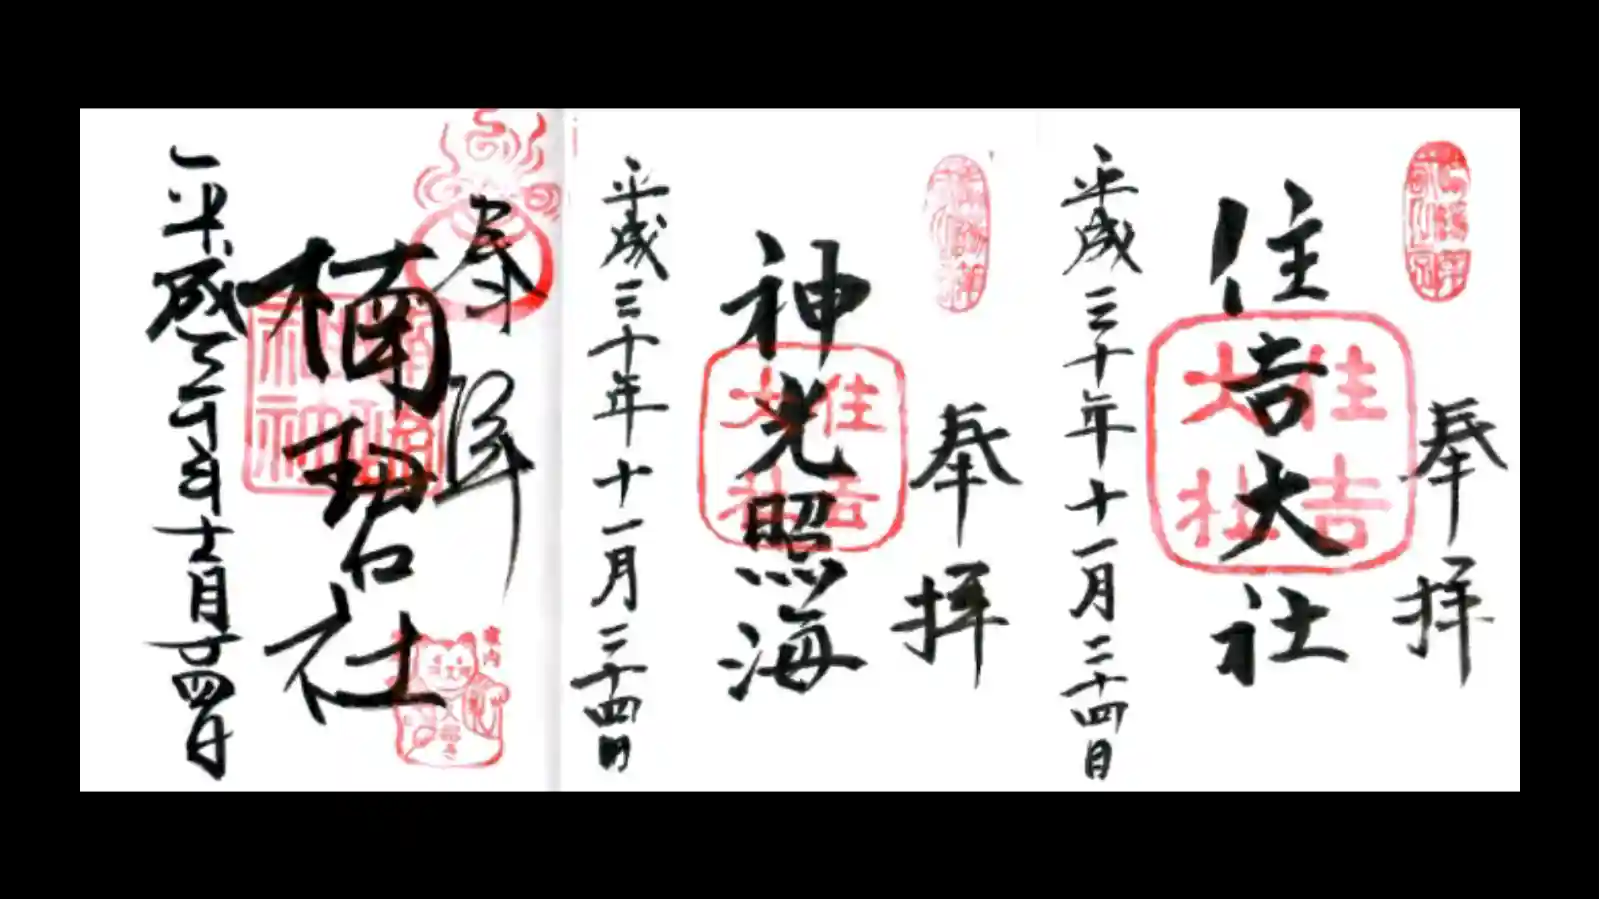 奉拝
住吉大社
住吉
大社
平成三十年十一月二十四日
奉拝
神光照海
住吉
大社
平成三十年十一月二十四日
奉拝
楠珺社
平成三十年十一月二十四日